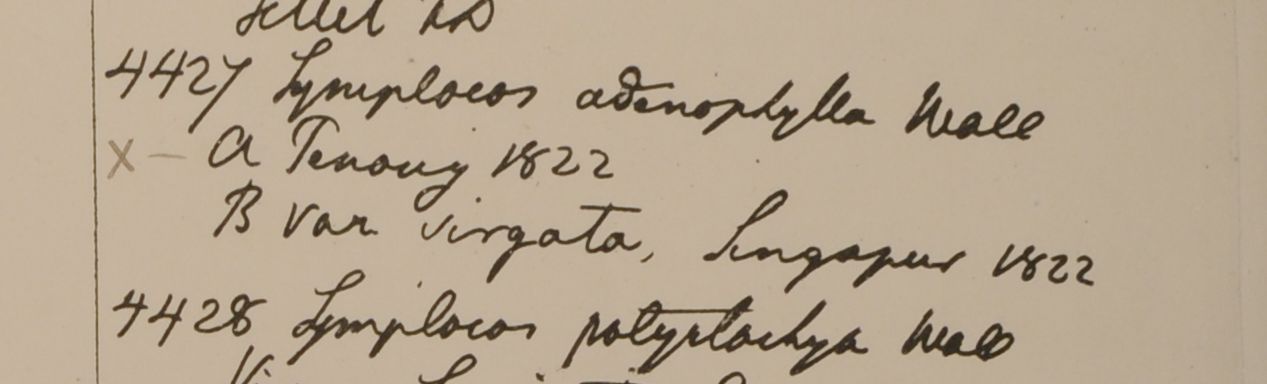 4427 Symplocos adenophylla Wall
X - A Penang 1822
B var virgata, Singapur 1822
4428 Symplocos polystachya Wall